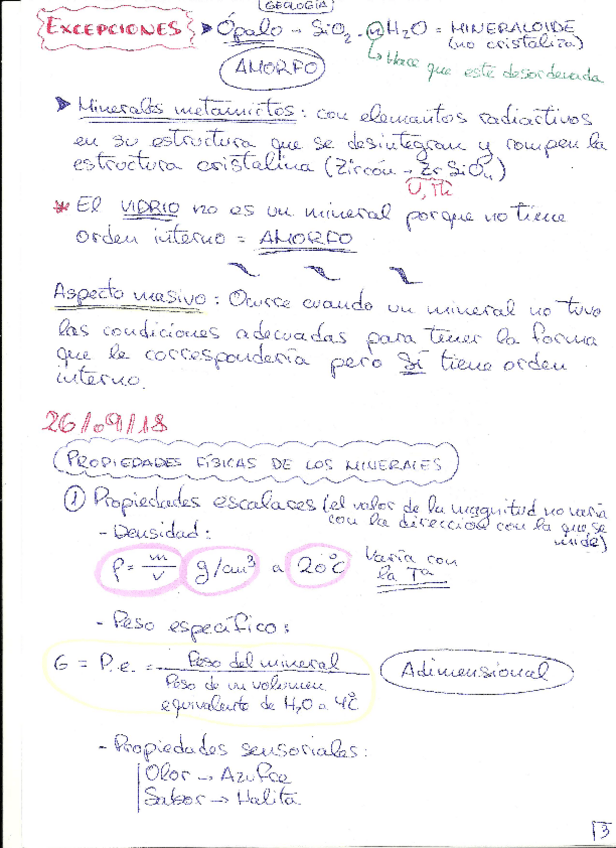 GEOLOGÍA
EXCEPCIONES ▸ Ópalo - SiO2 · nH2O = MINERALOIDE
(no cristaliza)
↳ Hace que esté desordenada
AMORFO
▸ Minerales metamícticos: con elementos radiactivos
en su estructura que se desintegran y rompen la
estructura cristalina (Zircón - ZrSiO4)
U, Th
* El VIDRIO no es un mineral porque no tiene
orden interno = AMORFO
Aspecto masivo: Ocurre cuando un mineral no tuvo
las condiciones adecuadas para tener la forma
que le correspondería pero SÍ tiene orden
interno.
26/09/18
PROPIEDADES FÍSICAS DE LOS MINERALES
① Propiedades escalares (el valor de la magnitud no varía
con la dirección con la que se
mide)
- Densidad:
ρ = m/v g/cm³ a 20°C Varía con
la Tª
- Peso específico:
G = P.e. = Peso del mineral
Peso de un volumen
equivalente de H2O a 4°C
Adimensional
- Propiedades sensoriales:
Olor → Azufre
Sabor → Halita
3